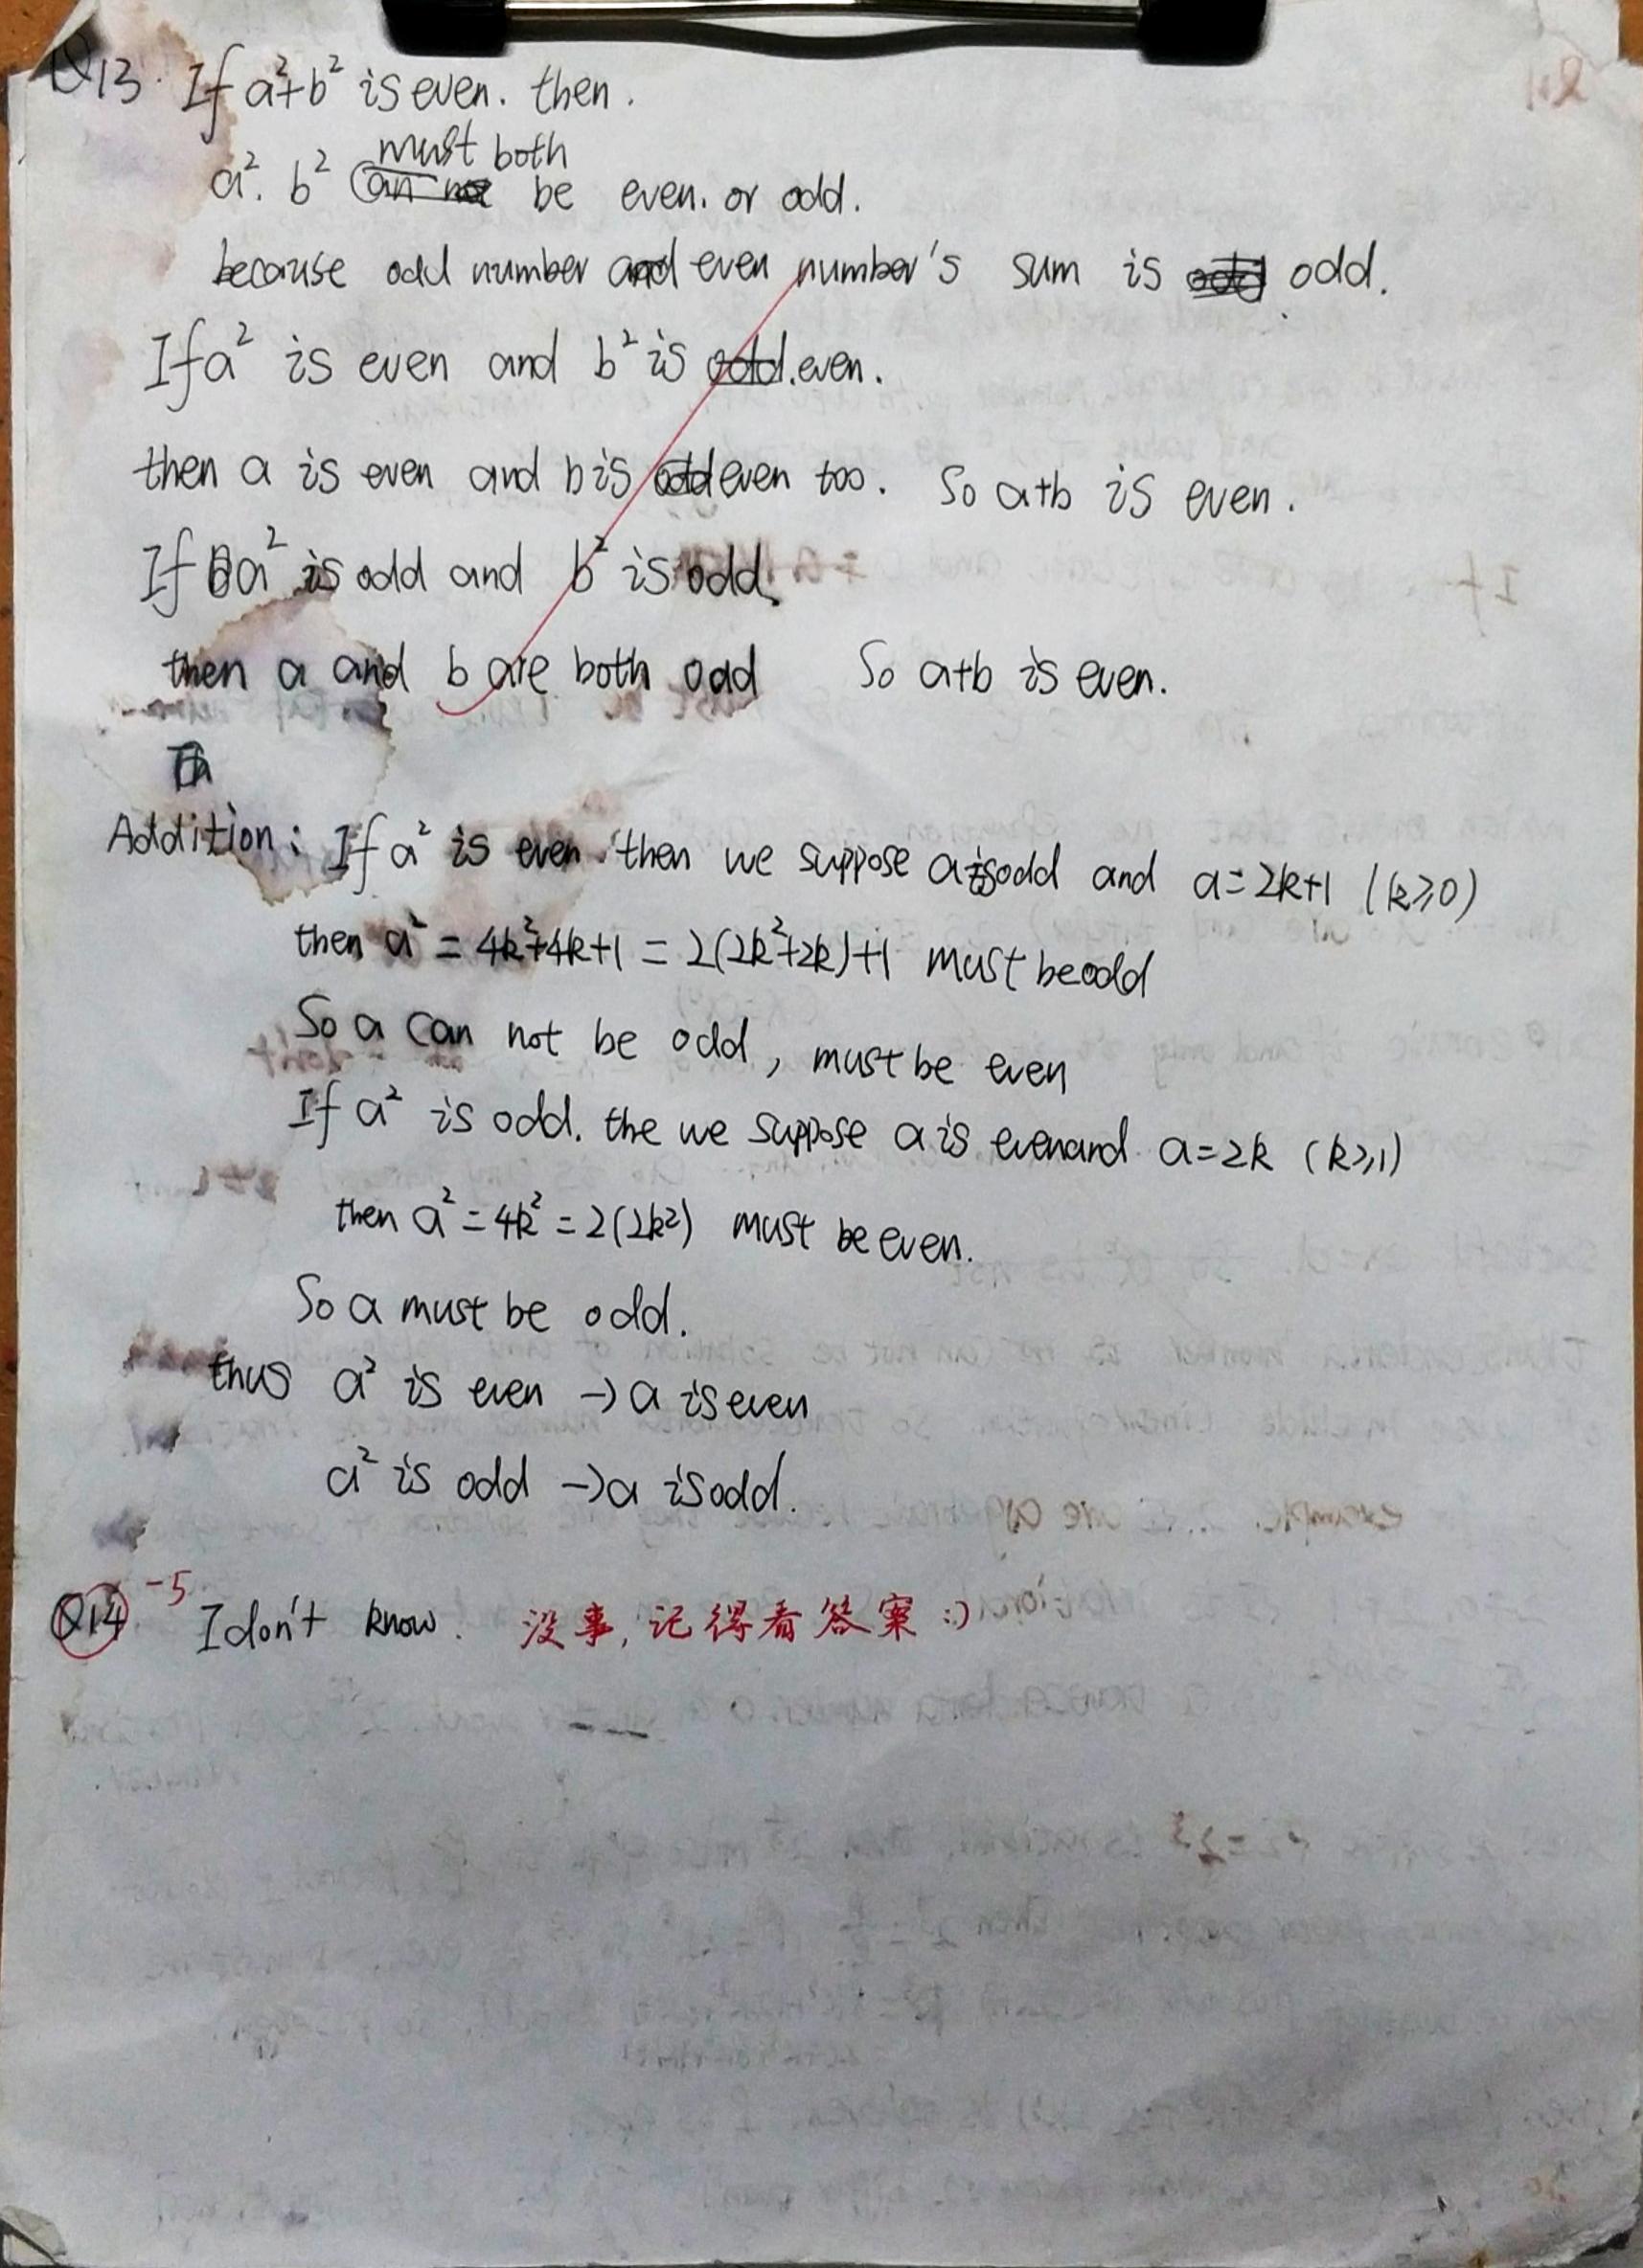 Q13. If a²+b² is even. then.
must both
a². b² can not be even. or odd.
because odd number and even number's sum is odd odd.
If a² is even and b² is odd. even.
then a is even and b is odd even too. So a+b is even.
If a² is odd and b² is odd.
then a and b are both odd So a+b is even.
Th
Addition: If a² is even. then we suppose a is odd and a=2k+1 (k⩾0)
then a² = 4k²+4k+1 = 2(2k²+2k)+1 must be odd
So a can not be odd, must be even
If a² is odd. the we suppose a is even and a=2k (k⩾1)
then a²=4k²=2(2k²) must be even.
So a must be odd.
thus a² is even → a is even
a² is odd → a is odd.
Q14 -5 I don't know. 没事, 记得看答案 :)